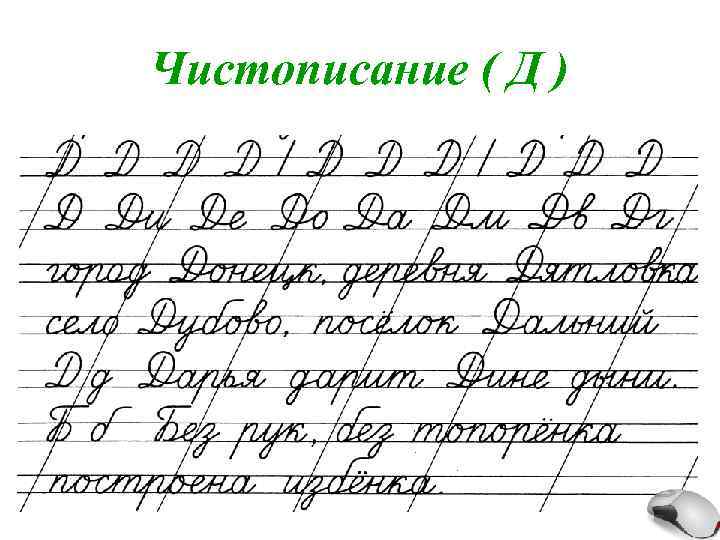 Чистописание ( Д )
Д Д Д Д | Д Д Д | Д Д Д
Д Ди Де До Да Дм Дв Дг
город Донецк, деревня Дятловка
село Дубово, посёлок Дальний
Д д Дарья дарит Дине дыни.
Б б Без рук, без топорёнка
построена избёнка.